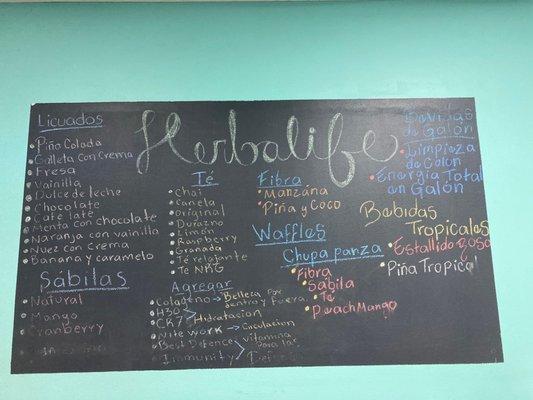 Herbalife
Licuados
Piña Colada
Galleta con Crema
Fresa
Vainilla
Dulce de leche
Chocolate
Cafe late
Menta con chocolate
Naranja con vainilla
Nuez con crema
Banana y caramelo
Sábilas
Natural
Mango
Cranberry
Té
Chai
Canela
Original
Durazno
Limón
Raspberry
Granada
Té relajante
Te NRG
Agregar
Colageno → Belleza por dentro y fuera
H30
CK7
Hidratacion
Nite Work → Circulacion
Best Defence
Immunity
vitamina
para las
Fibra
Manzana
Piña y Coco
Waffles
Chupa panza
Fibra
Sábila
Té
PeachMango
Bebidas
de Galón
Limpieza
de Galón
Energía Total
en Galón
Bebidas
Tropicales
Estallido
Piña Tropical